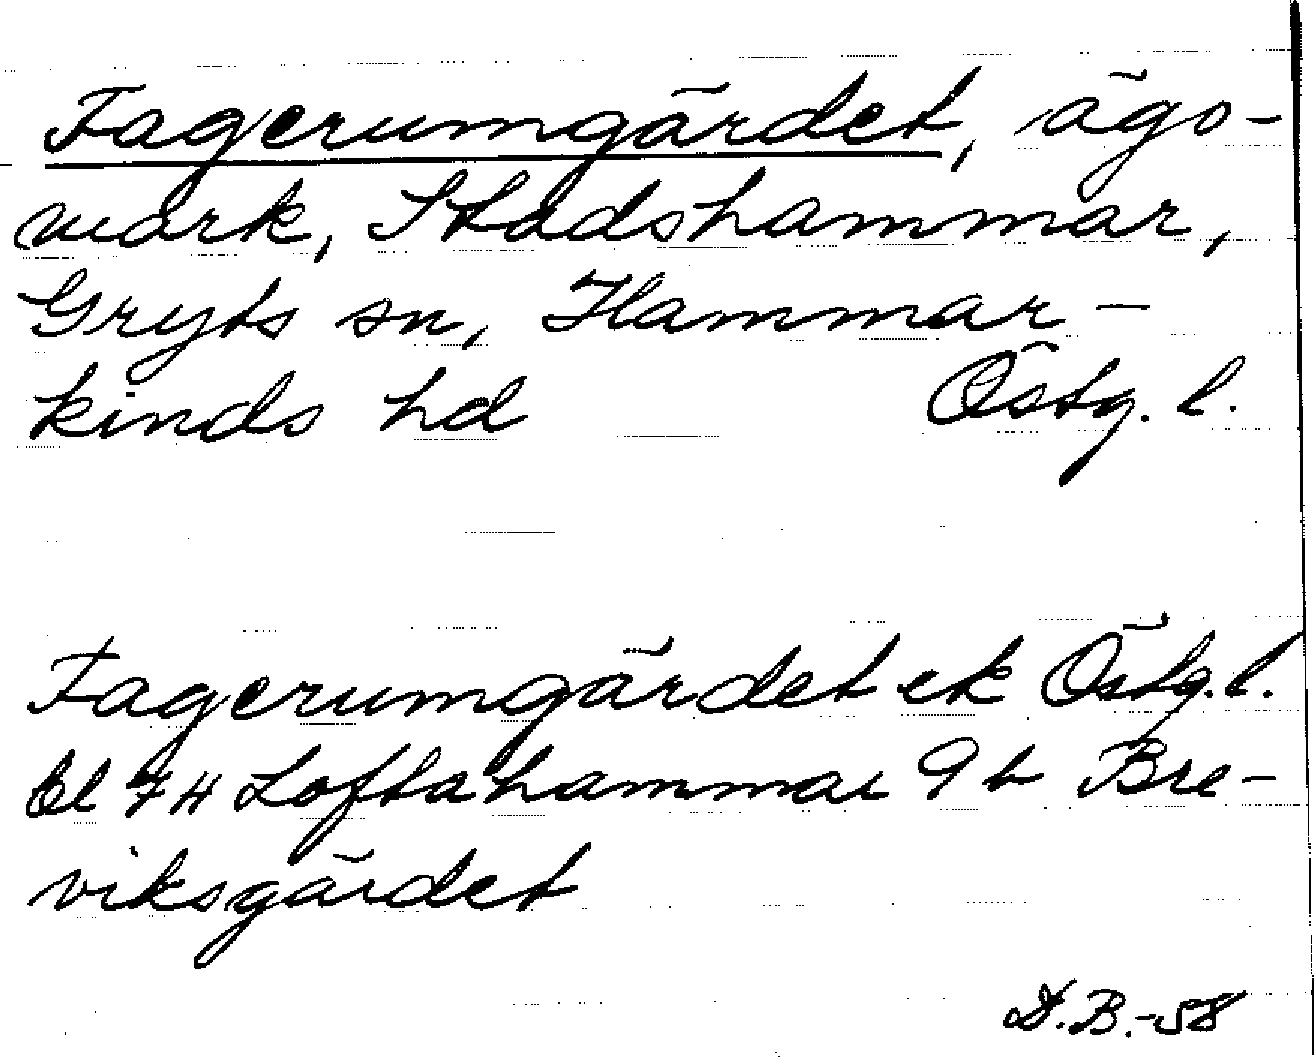 Fagerumgärdet, ägo-
mark, Stadshammar,
Gryts sn, Hammar-
kinds hd Östg. l.
Fagerumgärdet ek Östg. l.
bl 74 Loftahammar 9 b Bre-
viksgärdet
D.B.-58